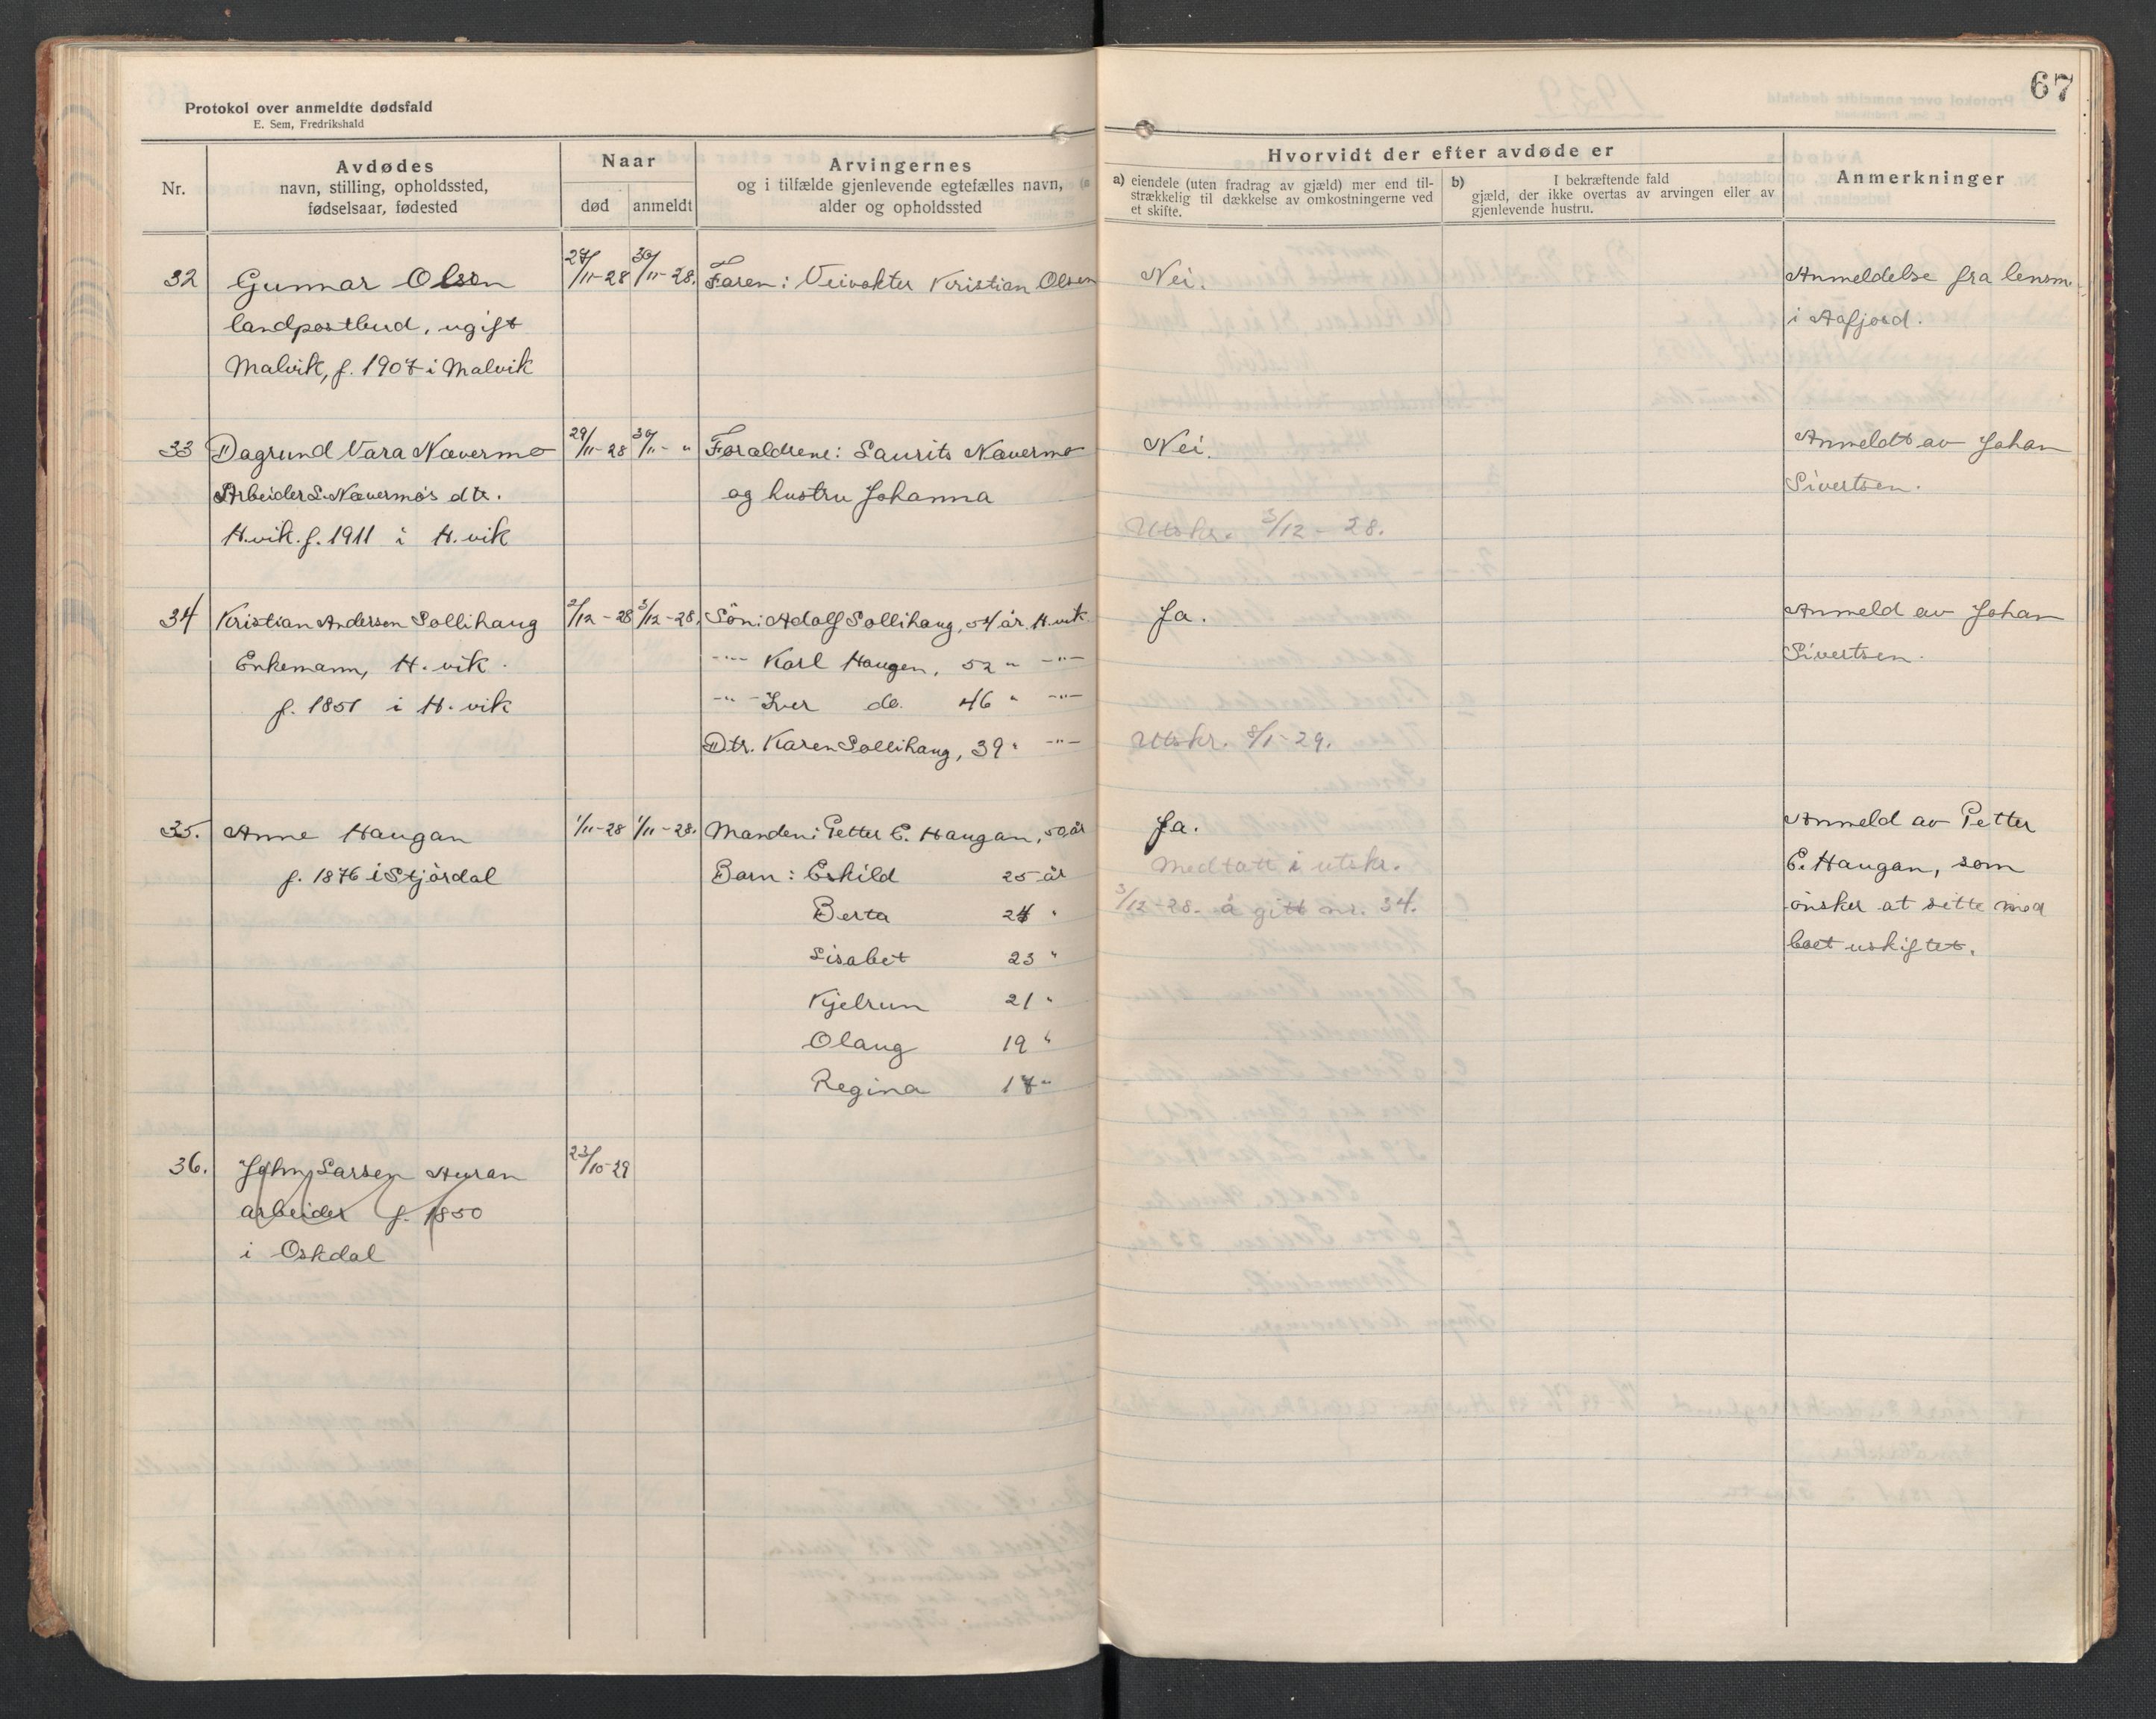 Protokol over anmeldte dødsfald
E. Sem, Fredrikshald
67
Nr.
Avdødes
navn, stilling, opholdssted,
fødselsaar, fødested
Naar
død
anmeldt
Arvingernes
og i tilfælde gjenlevende egtefælles navn,
alder og opholdssted
Hvorvidt der efter avdøde er
a) eiendele (uten fradrag av gjæld) mer end til-
strækkelig til dækkelse av omkostningerne ved
et skifte.
b) I bekræftende fald
gjæld, der ikke overtas av arvingen eller av
gjenlevende hustru.
Anmerkninger
32 Gunnar Olsen 27/11-28 30/11-28. Faren: Veivokter Kristian Olsen Nei. Anmeldelse fra lensm.
landpostbud, ugift i Aafjord.
Malvik, f. 1907 i Malvik
33 Dagrund Vara Nævermo 29/11-28 30/11- " Foraldrene: Laurits Nævermo Nei. Anmeldt av Johan
Arbeider L. Nævermo's dtr. og hustru Johanna Sivertsen.
H.vik. f. 1911 i H.vik Utskr. 3/12-28.
34 Kristian Andersen Sollihaug 2/12-28 3/12-28. Sön: Adolf Sollihaug, 54 år. H.vik Ja. Anmeld av Johan
Enkemann, H.vik. -"- Karl Haugen, 52 " -"- Sivertsen.
f. 1851 i H.vik -"- Iver do. 46 " -"-
Dtr. Karen Sollihaug, 39 " -"- Utskr. 8/1-29.
35. Anne Haugan 1/11-28 1/11-28. Manden: Petter E. Haugan, 50 år Ja. Anmeld av Petter
f. 1876 i Stjördal Barn: Eskild 25 år Medtatt i utskr. E. Haugan, som
Berta 24 " 3/12-28. å gitt nr. 34. önsker at sitte med
Lisabet 23 " boet uskiftet.
Kjelrun 21 "
Olaug 19 "
Regina 17 "
36. John Larsen Auran 23/10-29
arbeider f. 1850
i Oskdal